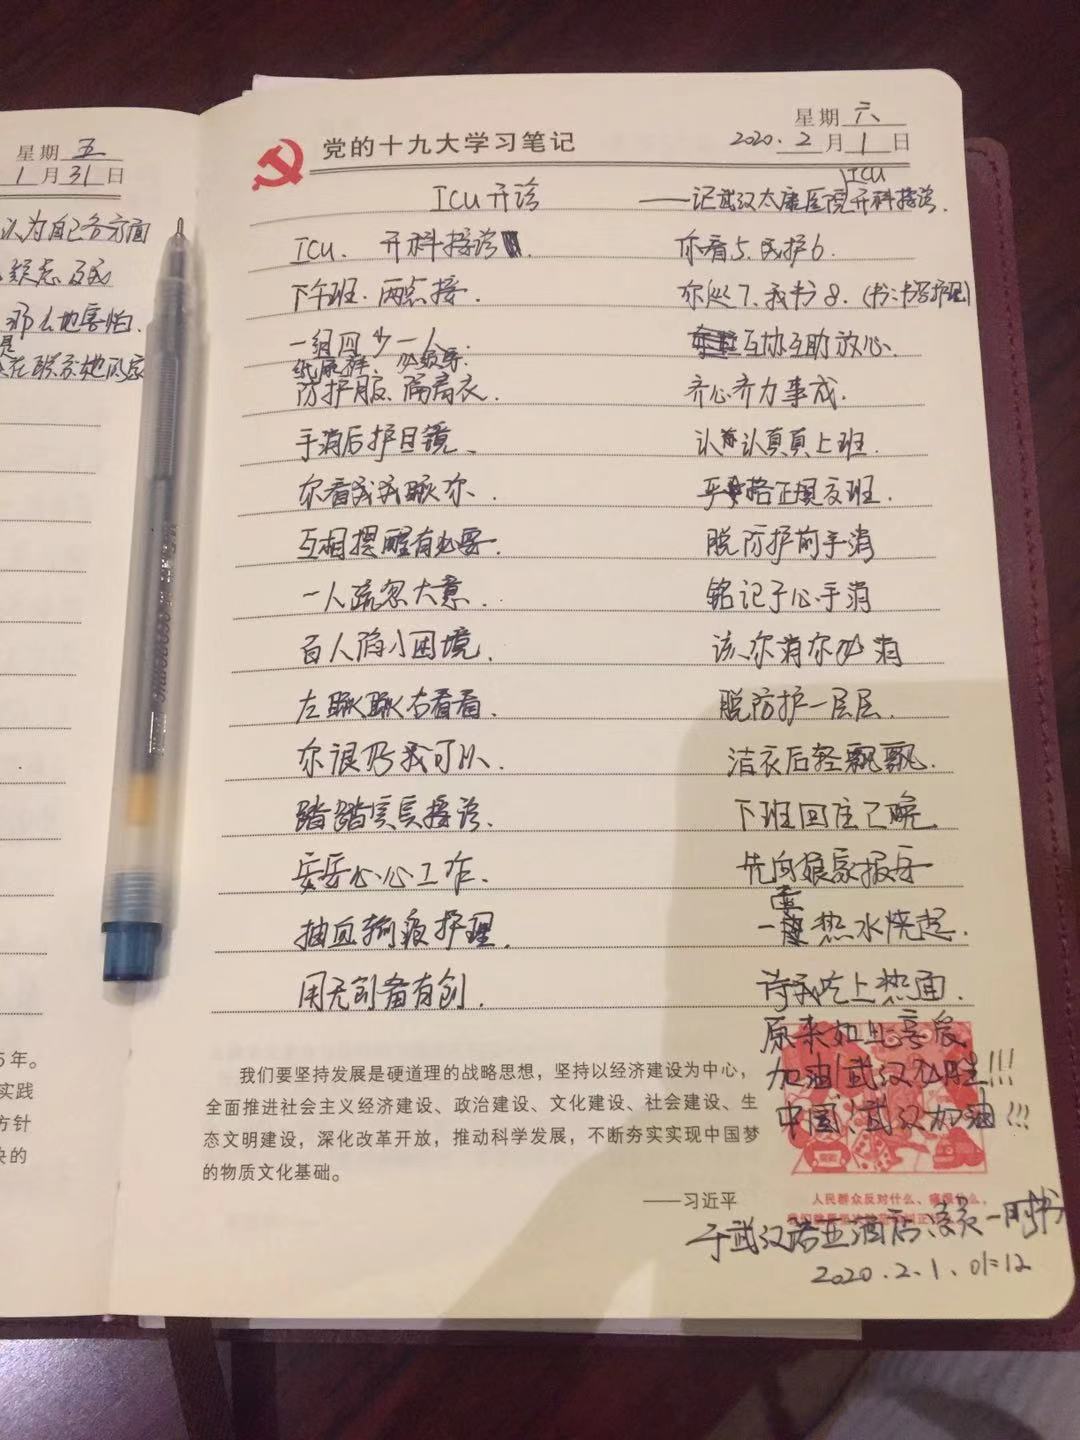 星期 五
1 月 31 日
认为自己各方面
那么地害怕.
是
在联系她的家
5年。
实践
方针
央的
星期 六
党的十九大学习笔记
2020. 2 月 1 日
ICU开诊
ICU
——记武汉太康医院开科接诊.
ICU. 开科接诊
下午班. 两点接.
一组四少一人.
纸尿裤. 必须穿.
防护服、隔离衣.
手消后护目镜、
你看我我瞅你.
互相提醒有必要.
一人疏忽大意.
百人陷小困境.
左瞅瞅右看看.
你很好我可以.
踏踏实实接诊.
安安心心工作.
抽血输液护理.
用无创备有创.
你看5.我护6.
你处7.我书8.(书:书写护理)
互协互助放心.
齐心齐力事成.
认认真真上班.
严格正规交班.
脱防护前手消
铭记于心手消
该你消你必消
脱防护一层层.
洁衣后轻飘飘.
下班回住已晚.
先向娘家报平
一壶热水烧起.
待我吃上热面.
原来如此享受
加油!武汉必胜!!!
中国、武汉加油!!!
我们要坚持发展是硬道理的战略思想，坚持以经济建设为中心，
全面推进社会主义经济建设、政治建设、文化建设、社会建设、生
态文明建设，深化改革开放，推动科学发展，不断夯实实现中国梦
的物质文化基础。
——习近平
人民群众反对什么、痛恨什么，
于武汉诺亚酒店凌晨一时书
2020.2.1、01:12